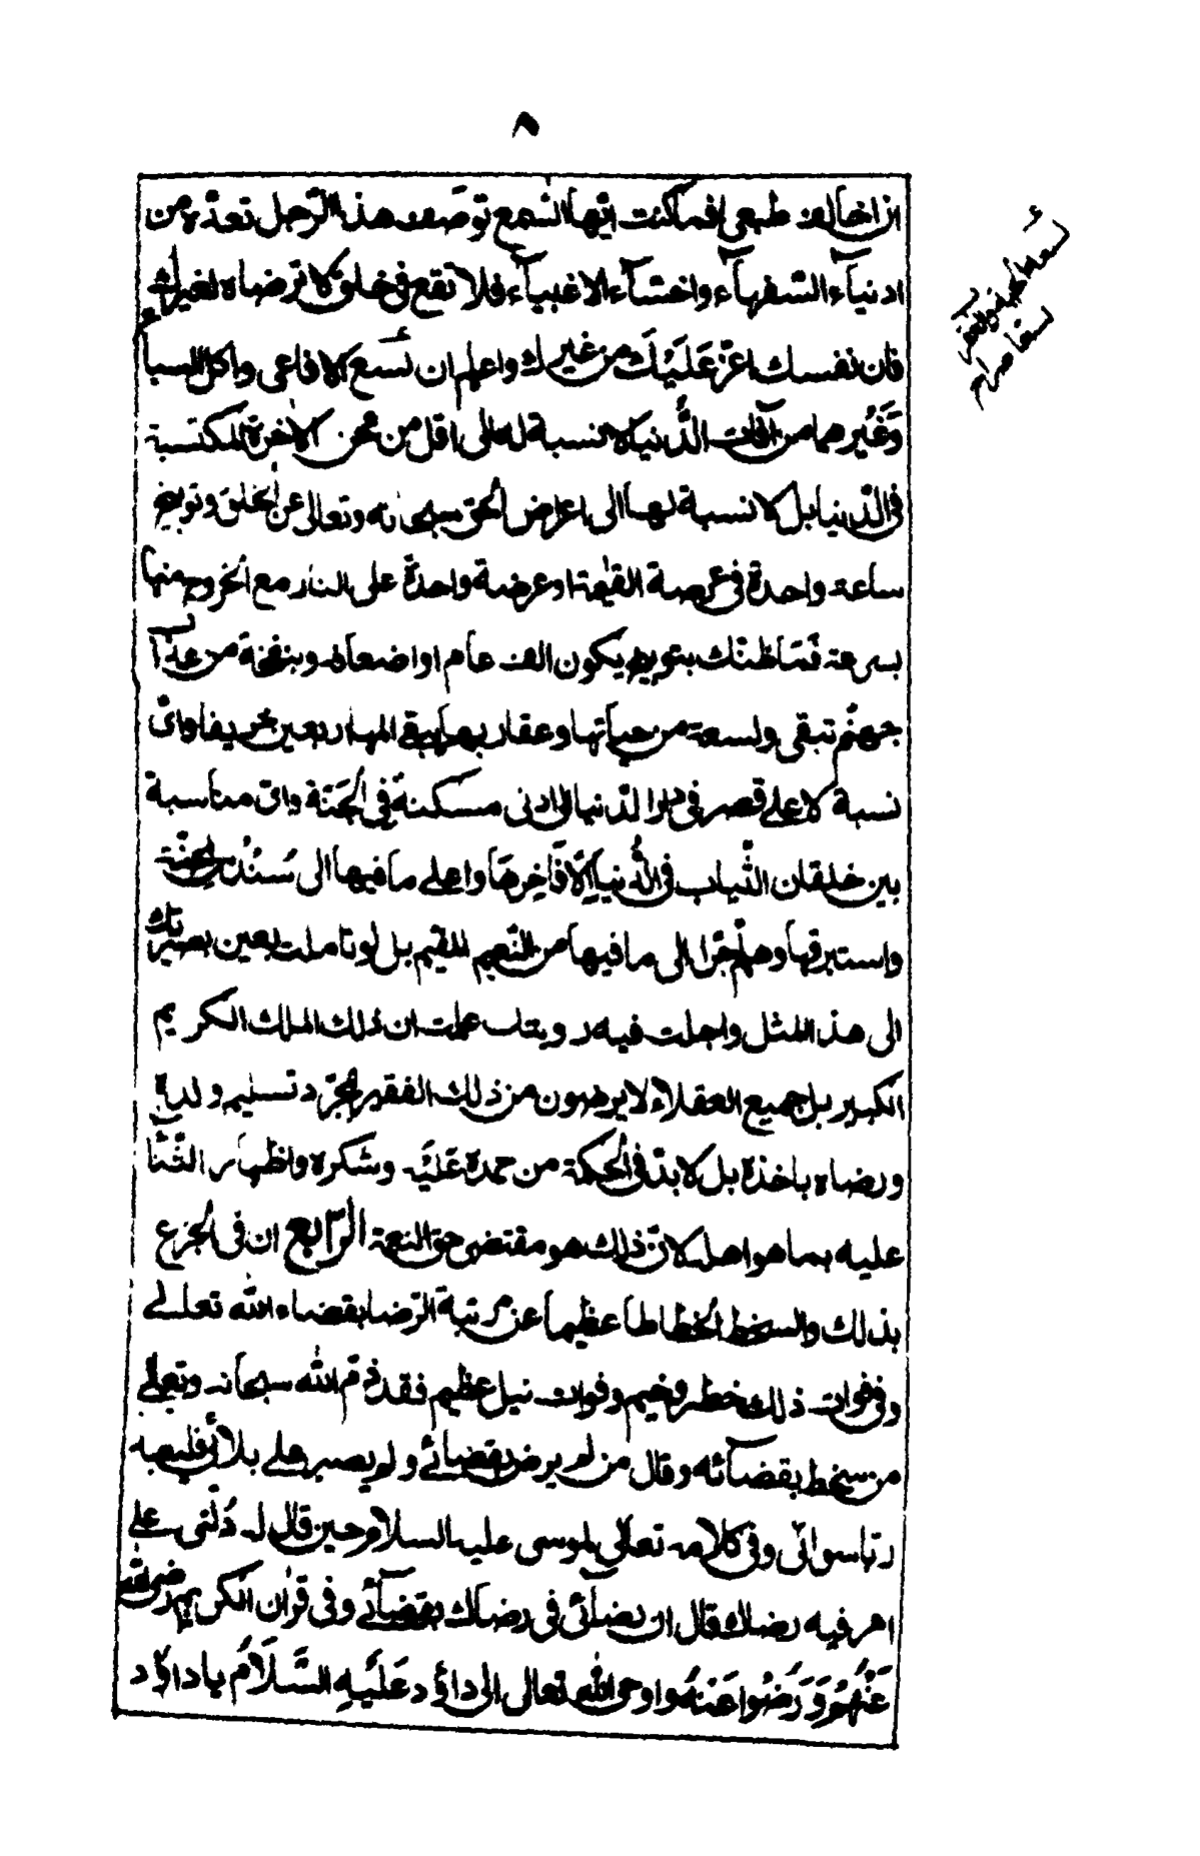 ٨
ان اخالف طبعي افما كنت ايّها السّمع توصف هذا الرّجل تعدّه من
ادنيآء السّفهآء واخسّآء الاغبيآء فلا تقع في خلق لا ترضاه لغيرك
فان نفسك اعزّ عَلَيْكَ من غيرك واعلم ان لسع الافاعى واكل السباع
وَغَيرهما من آفات الدُّنيا لا نسبة له الى اقل من محن الاخرة المكتسبة
فى الدّنيا بل لا نسبة لها الى اعراض الحق سبحانه وتعالى عن الخلق وتوبيخ
ساعة واحدة في عرصة القيٰمة او عرضة واحدة على النار مع الخروج منها
بسرعة فَمَا ظنّك بتوبيخ يكون الف عام او اضعافه وبنفخة من عذاب
جهنّم تبقى ولسعة من حياتها وعقاربها يبقى المها اربعين خريفا واىّ
نسبة لاعلى قصر في دار الدّنيا الى ادنى مسكنة في الجَنّة واىّ مناسبة
بين خلقان الثّياب فى الدُّنيا الا فَاخِرهَا واعلى ما فيها الى سُنْدُس الجنّة
واستبرقها وهلّم جرّا الى ما فيها من النّعيم المقيم بل لو تاملت بعين بصيرتك
الى هذا المثل واجلت فيه رويتك علمت ان ذلك الملك الكريم
الكبير بل جميع العقلاء لا يرضون من ذلك الفقير بمجرّد تسليم ولده
ورضاه باخذه بل لا بدّ فى الحكمة من حمده عَلَيْه وشكره واظهار الثّنآ
عليه بما هو اهله لانّ ذلك هو مقتضى حق النعمة الرّابع ان فى الجزع
بذلك والسخط انحطاطا عظيما عن مرتبة الرّضا بقضاء الله تعالى
وفى فوات ذلك خطر وخيم وفوات نيل عظيم فقد ذمّ الله سبحانه وتعالى
من سخط بقضآئه وقال من لم يرض بقضائى ولم يصبر على بلائى فليعبد
ربّا سوائى وفى كلامه تعالى لموسى عليه السلام حين قال له دُلّنى على
امر فيه رضاك قال ان رضآئى فى رضاك بقضآئى وفى قران الكريم رضى الله
عَنْهُمْ وَرَضُوا عَنْهُ واوحى الله تعالى الى داؤد عَلَيْهِ السَّلَامُ يا داؤد